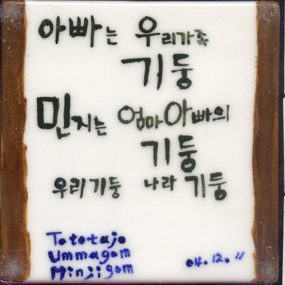 아빠는 우리가족
기둥
민지는 엄마아빠의
기둥
우리기둥 나라기둥
Tototajo
Ummagom
Minjigom
04.12.11